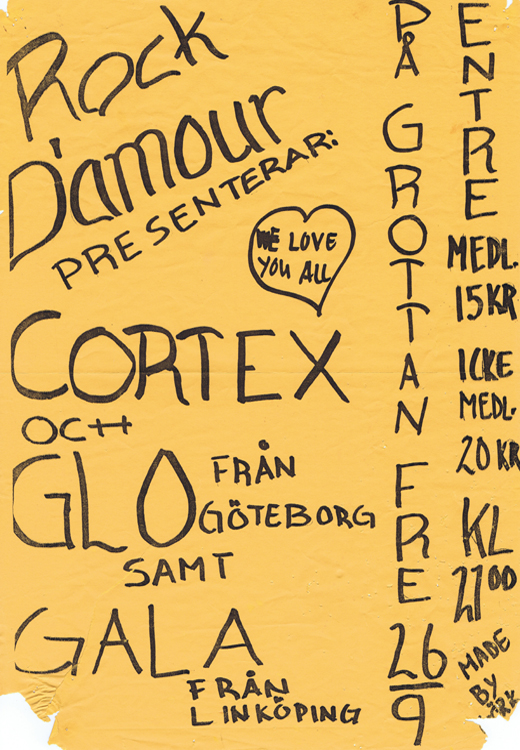 Rock
D'amour
PRESENTERAR:
WE LOVE
YOU ALL
CORTEX
OCH
GLO FRÅN
GÖTEBORG
SAMT
GALA
FRÅN
LINKÖPING
PÅ GROTTAN FRE 26/9
ENTRE
MEDL.
15 KR
ICKE
MEDL.
20 KR
KL
2100
MADE
BY